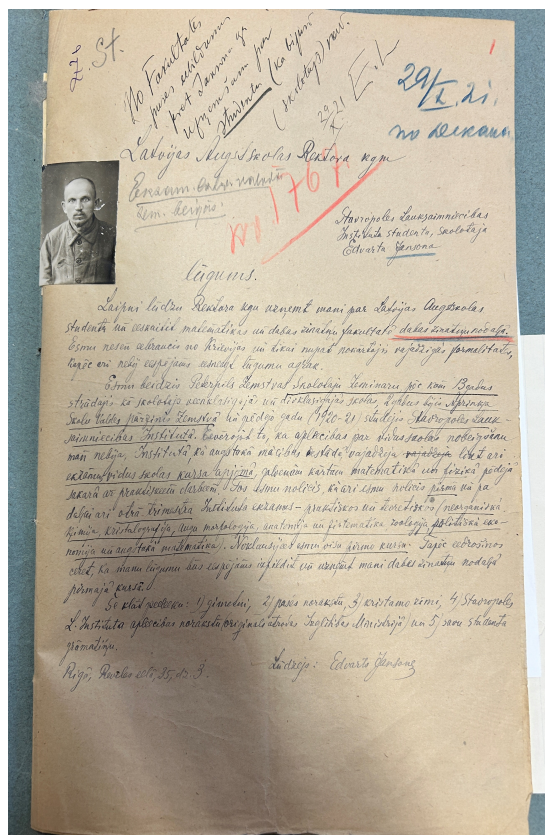 276. St.
No Fakultates
puses
pret Jansona kga
uzņemšanu par
studentu (kā bijušo
skolotāju) nav.
29/X 21
1
29/X. 21.
no dekana
Latvijas Augstskolas Rektora kgm
Eksam.
No 1767
Stavropoles Lauksaimniecības
Instituta studenta, skolotāja
Edvarta Jansona
Lūgums.
Laipni lūdzu Rektora kgu uzņemt mani par Latvijas Augstskolas
studentu un ieskaitīt matematikas un dabas zinātņu fakultātē dabas zinātņu nodaļā.
Esmu nesen iebraucis no Krievijas un tikai nupat nokārtojis vajadzīgās formalitates,
kapēc arī nebij iespējams iesniegt lūgumu agrāk.
Esmu beidzis Pēterpils Zemstvas Skolotāju Seminaru pēc kam
strādājis kā skolotājs
un pēdējo gadu (1920-21) studējis Stavropoles Lauk-
saimniecības Institutā. Ievērojot to, ka apliecības par vidusskolas nobeigšanu
man nebija, Institutā kā augstākā mācības iestādē vajadzēja likt arī
eksamenu vidus skolas kursa apjomā, galvenām kārtām matematikā un fizikā pēdējā
sakarā ar praktiskiem darbiem. Tos esmu nolicis, kā arī esmu nolicis pirmā un pa
daļai arī otrā trimestra Instituta eksamenus - praktiskos un teoretiskos (neorganiskā
ķimija, kristalografija, augu morfologija, anatomija un sistematika zoologija politiskā eko-
nomija un augstākā matematika). Noklausījies esmu visu pirmo kursu. Tapēc iedrošinos
cerēt, ka manu lūgumu būs iespējams izpildīt un uzņemt mani dabas zinātņu nodaļas
pirmajā kursā.
Še klāt pielieku: 1) ģimetni, 2) pases norakstu, 3) kristāmo zīmi, 4) Stavropoles
L. Instituta apliecības norakstu (originals atrodas Izglītības Ministrijā) un 5) savu studenta
grāmatiņu.
Rīgā,
Lūdzējs: Edvarts Jansons